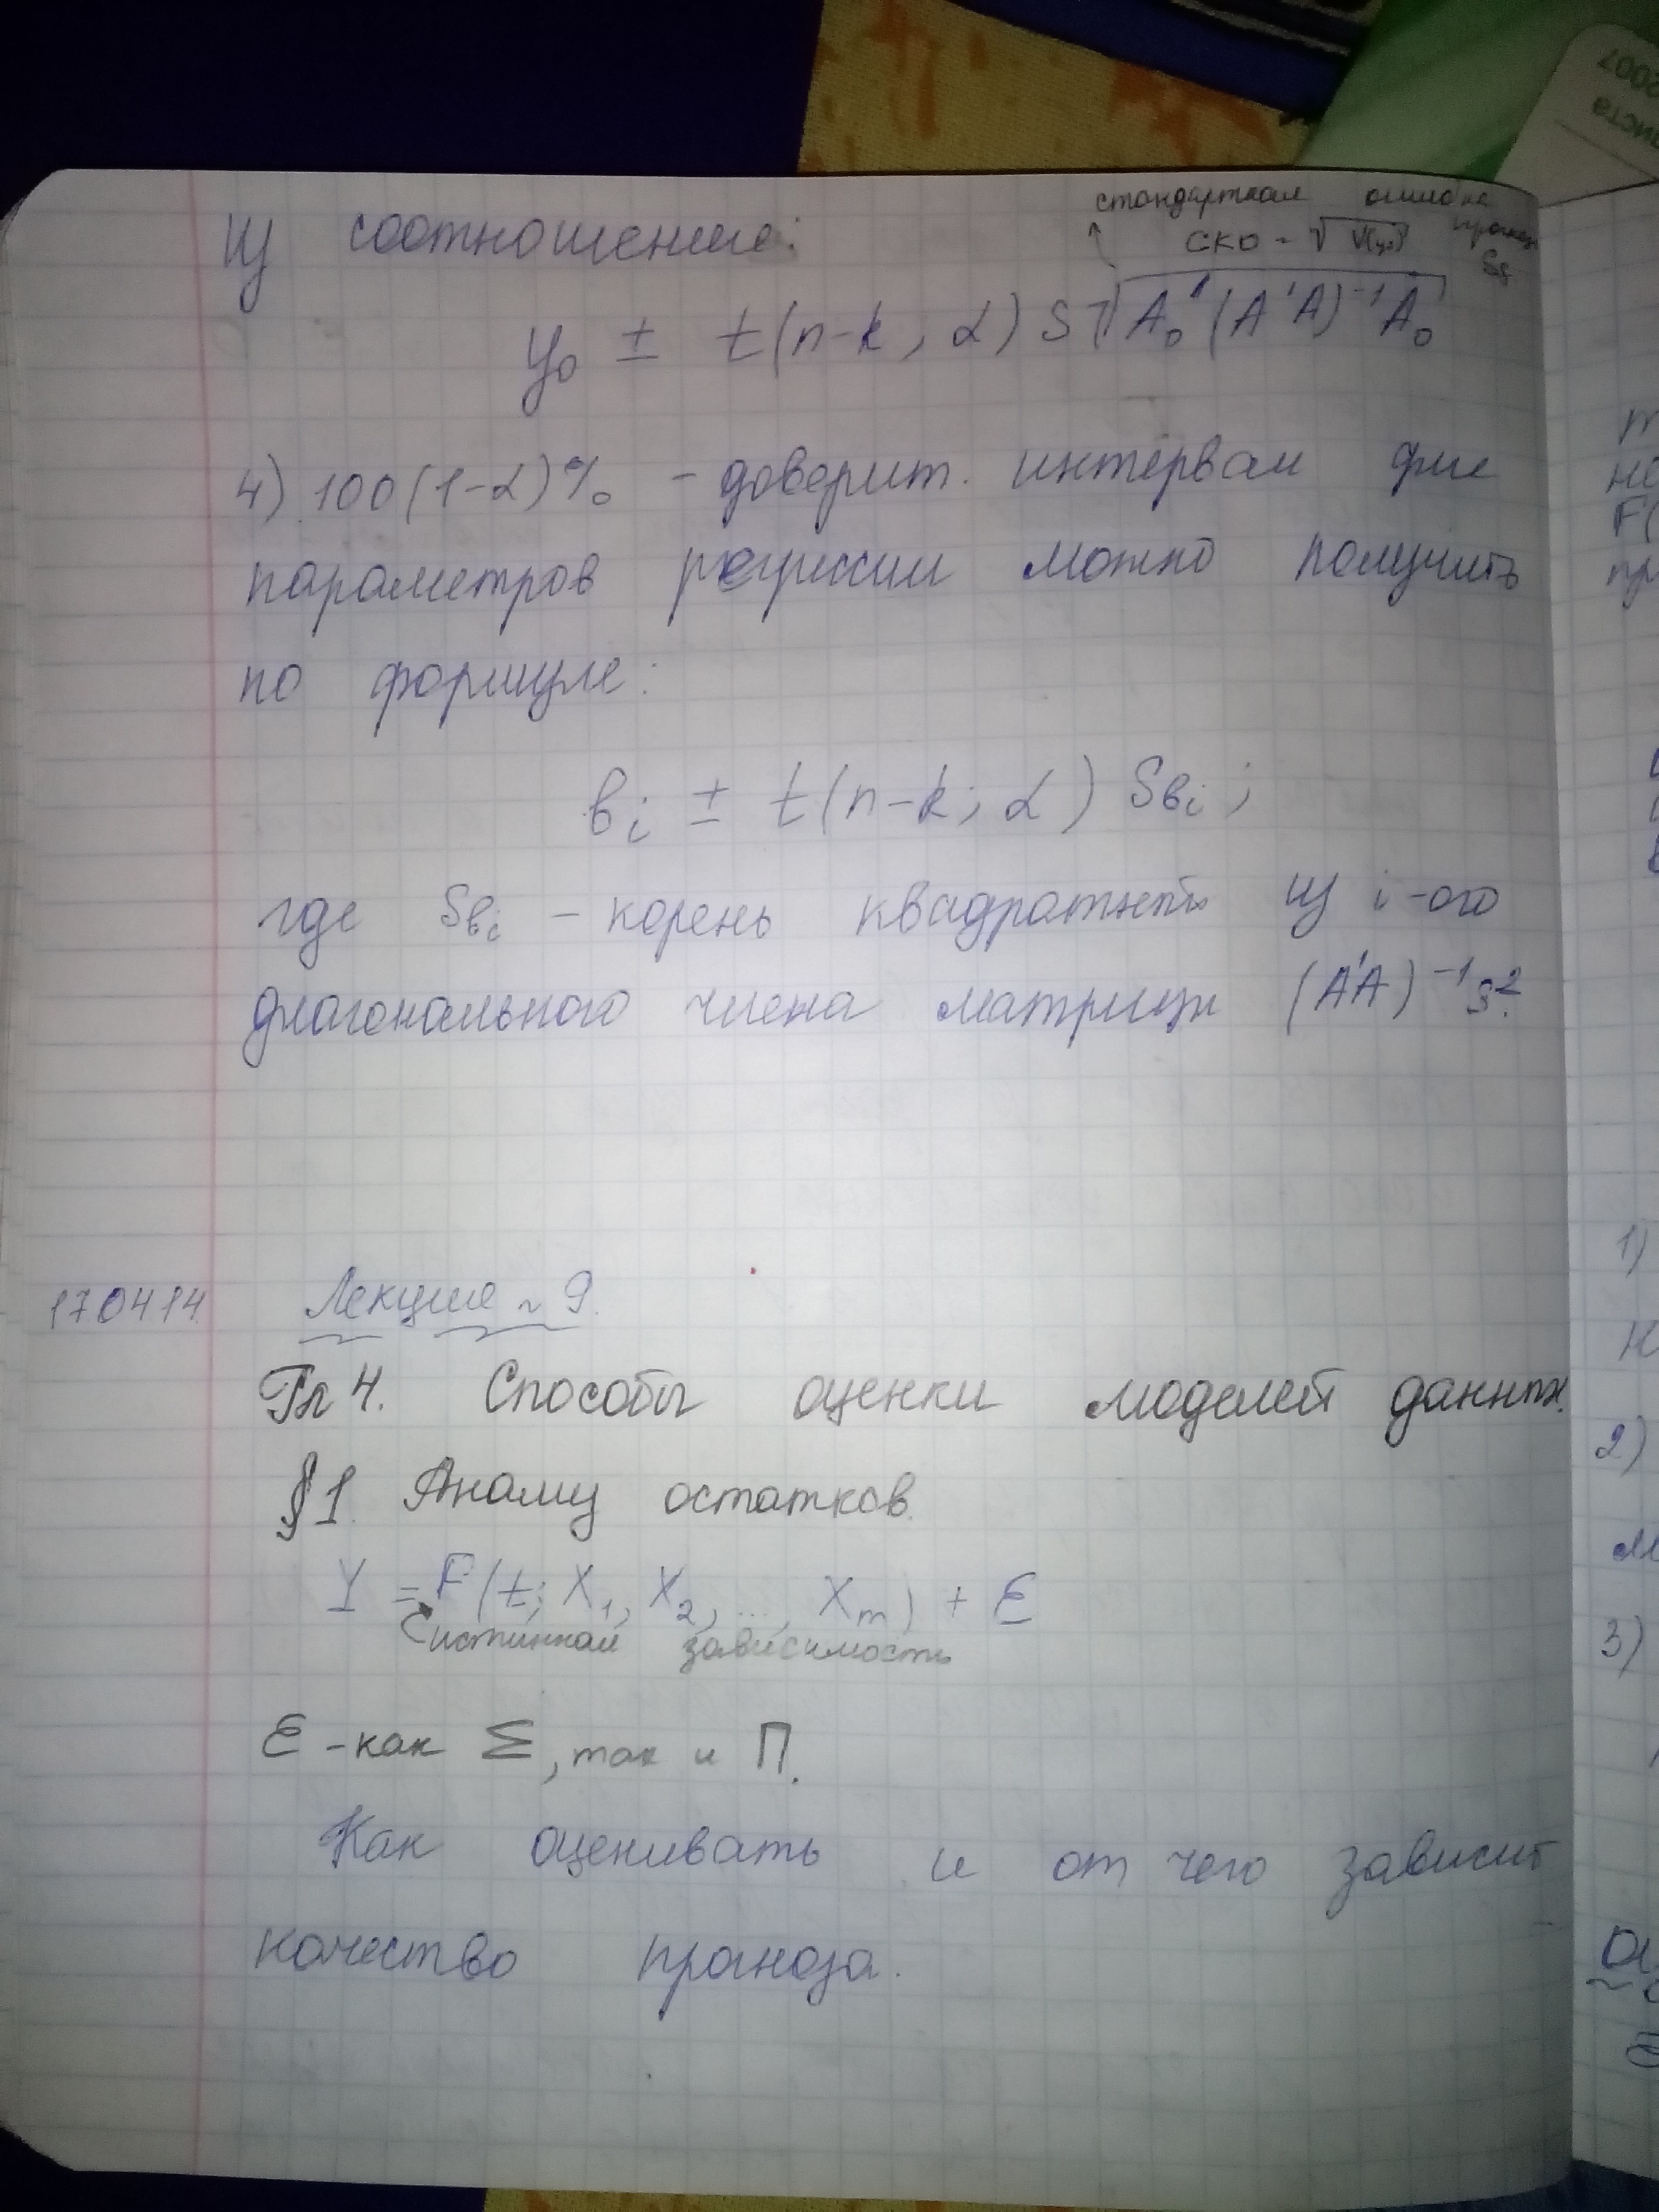 стандартная ошибка
прогноза
СКО = √V(y₀)
Sf
из соотношения:
y₀ ± t(n-k, α) S √A₀'(A'A)⁻¹A₀
4) 100(1-α)% - доверит. интервал для
параметров регрессии можно получить
по формуле:
вᵢ ± t(n-k; α) Sвᵢ;
где Sвᵢ - корень квадратный из i-ого
диагонального члена матрицы (A'A)⁻¹s².
170414 Лекция ~ 9.
Гл 4. Способы оценки моделей данных.
§1. Анализ остатков.
Y = F(t; X₁, X₂, ..., Xm) + Ɛ
истинная зависимость
Ɛ - как Σ, так и П.
Как оценивать и от чего зависит
качество прогноза.
F(
пр
1)
2)
3)
2007